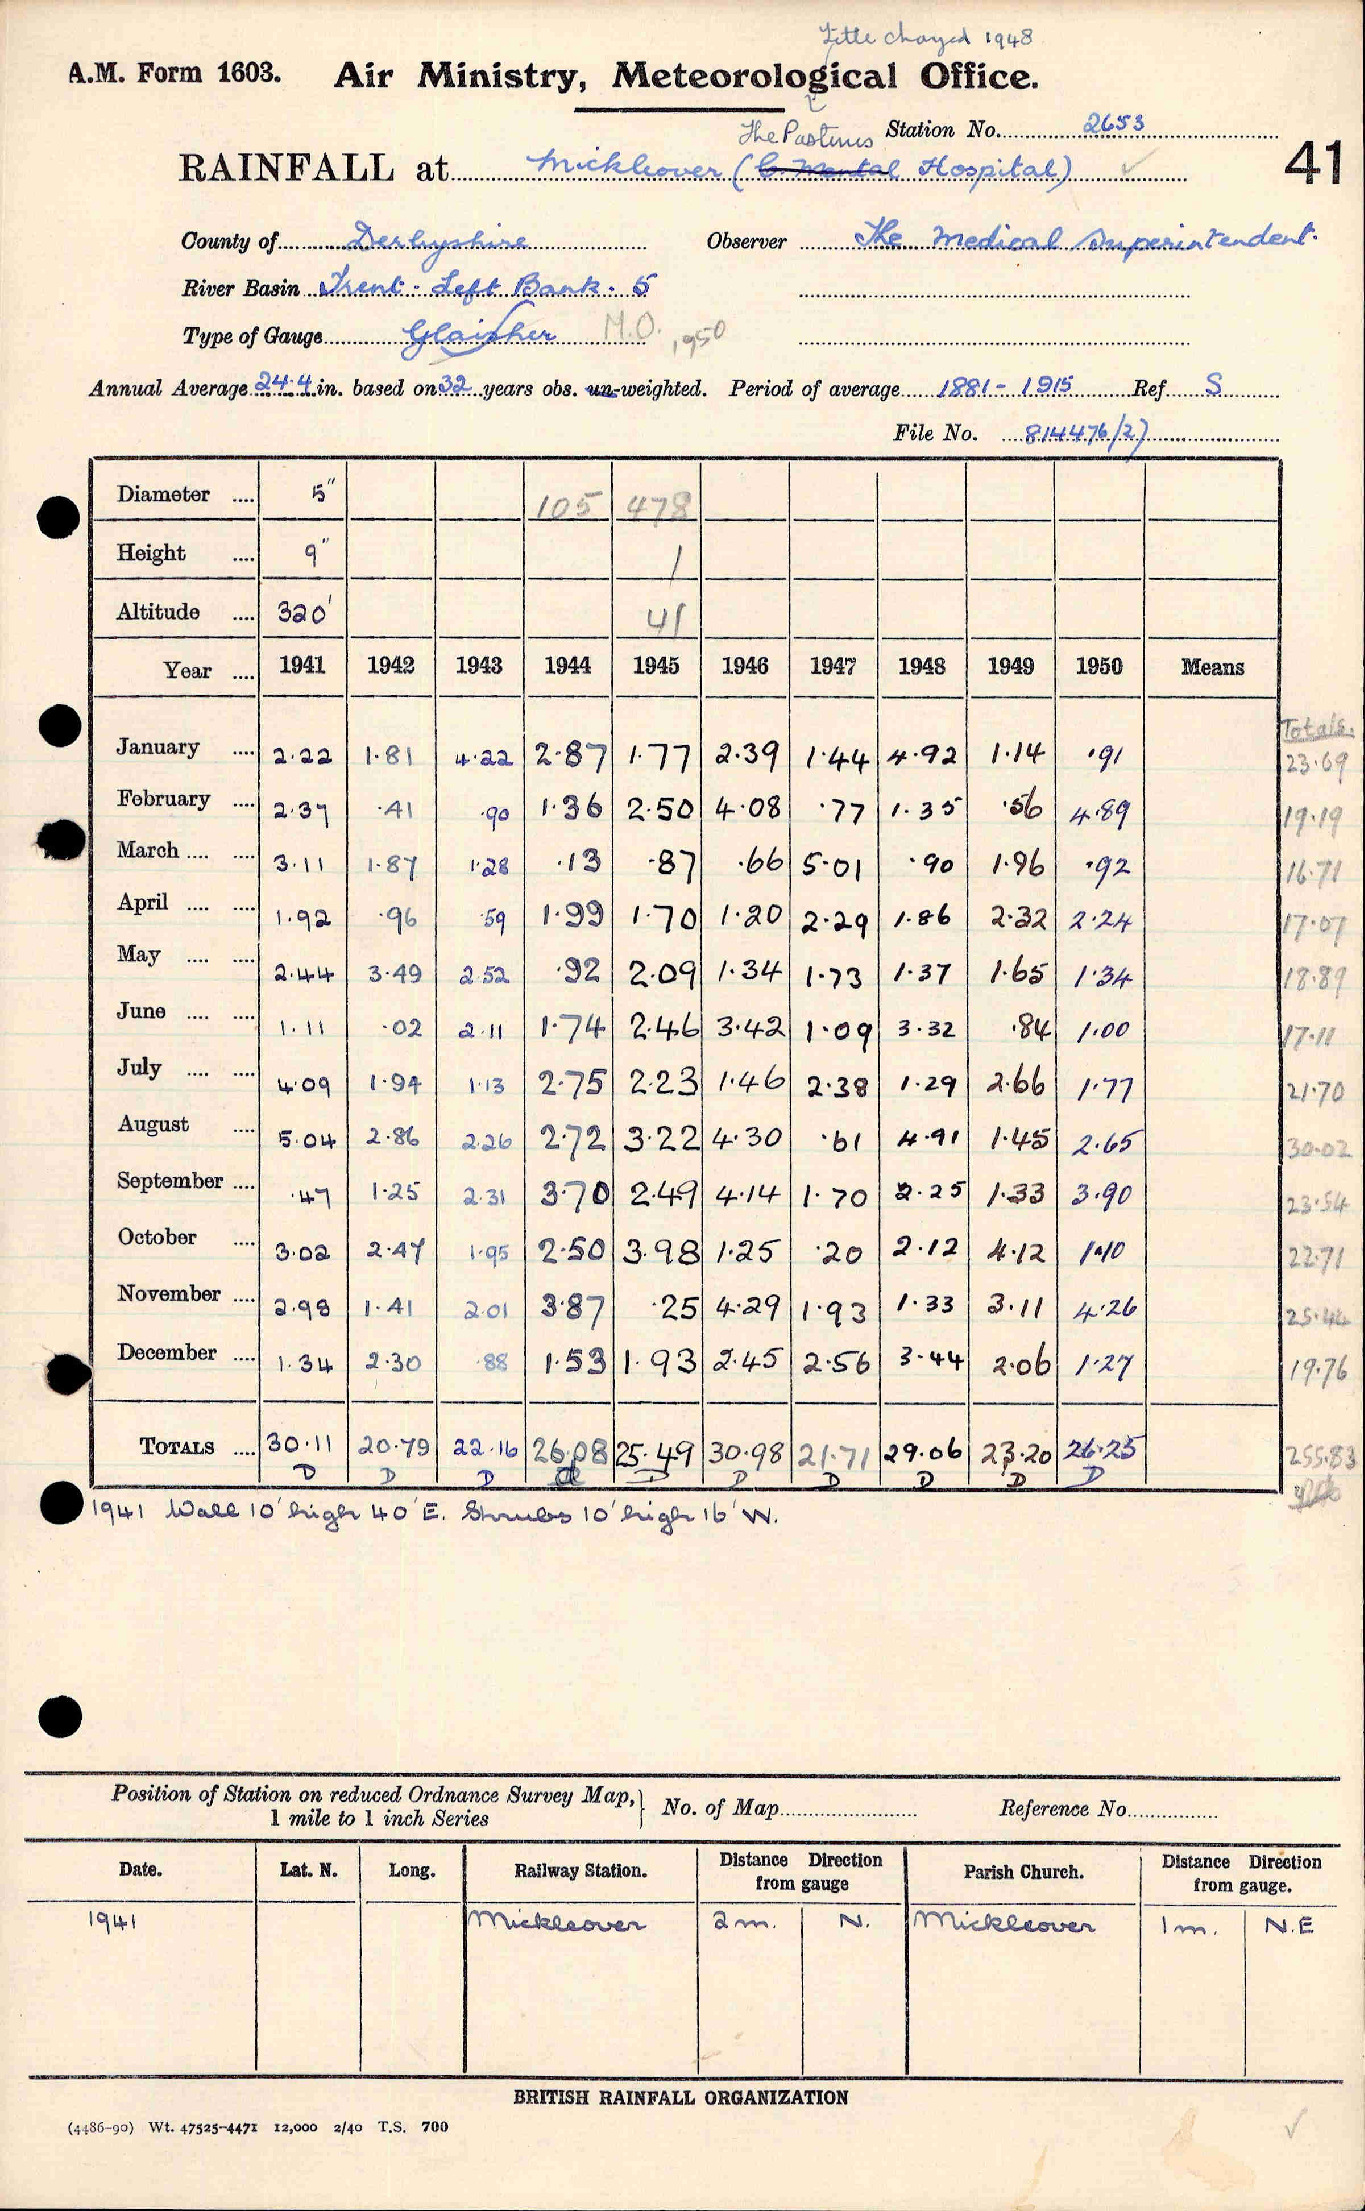 Title changed 1948
A.M. Form 1603. Air Ministry, Meteorological Office.
The Pastures Station No. 2653
RAINFALL at Mickleover (C. Mental Hospital) 41
County of Derbyshire Observer The Medical Superintendent.
River Basin Trent - Left Bank - 5
Type of Gauge Glaisher M.O. 1950
Annual Average 24.4 in. based on 32 years obs. un-weighted. Period of average 1881 - 1915 Ref S
File No. 814476/27
Diameter .... 5" 105 478
Height .... 9" 1
Altitude .... 320' 41
Year .... 1941 1942 1943 1944 1945 1946 1947 1948 1949 1950 Means
Totals.
January .... 2.22 1.81 4.22 2.87 1.77 2.39 1.44 4.92 1.14 .91 23.69
February .... 2.37 .41 .90 1.36 2.50 4.08 .77 1.35 .56 4.89 19.19
March .... .... 3.11 1.87 1.28 .13 .87 .66 5.01 .90 1.96 .92 16.71
April .... .... 1.92 .96 .59 1.99 1.70 1.20 2.29 1.86 2.32 2.24 17.07
May .... .... 2.44 3.49 2.52 .92 2.09 1.34 1.73 1.37 1.65 1.34 18.89
June .... .... 1.11 .02 2.11 1.74 2.46 3.42 1.09 3.32 .84 1.00 17.11
July .... .... 4.09 1.94 1.13 2.75 2.23 1.46 2.38 1.29 2.66 1.77 21.70
August .... 5.04 2.86 2.26 2.72 3.22 4.30 .61 4.91 1.45 2.65 30.02
September .... .47 1.25 2.31 3.70 2.49 4.14 1.70 2.25 1.33 3.90 23.54
October .... 3.02 2.47 1.95 2.50 3.98 1.25 .20 2.12 4.12 1.10 22.71
November .... 2.98 1.41 2.01 3.87 .25 4.29 1.93 1.33 3.11 4.26 25.44
December .... 1.34 2.30 .88 1.53 1.93 2.45 2.56 3.44 2.06 1.27 19.76
TOTALS .... 30.11 20.79 22.16 26.08 25.49 30.98 21.71 29.06 23.20 26.25 255.83
D D D D D D D D D
1941 Wall 10' high 40' E. Shrubs 10' high 16' W.
Position of Station on reduced Ordnance Survey Map, } No. of Map Reference No.
1 mile to 1 inch Series
Date. Lat. N. Long. Railway Station. Distance Direction from gauge Parish Church. Distance Direction from gauge.
1941 Mickleover 2 m. N. Mickleover 1 m. N.E
BRITISH RAINFALL ORGANIZATION
(4486-90) Wt. 47525-4471 12,000 2/40 T.S. 700